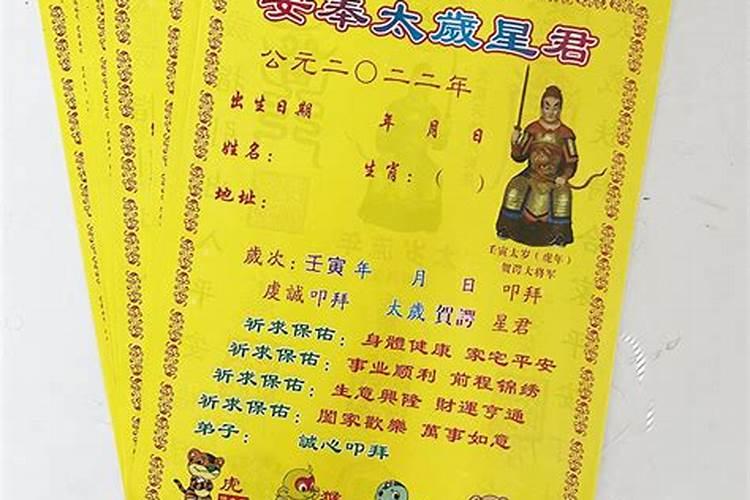 安奉太歲星君
公元二〇二二年
出生日期 年 月 日
姓名: 生肖: ( )
地址:
壬寅太岁(虎年)
贺谔大将军
歲次: 壬寅年 月 日 叩拜
虔誠叩拜 太歲賀諤 星君
祈求保佑: 身體健康 家宅平安
祈求保佑: 事业顺利 前程锦绣
祈求保佑: 生意興隆 財運亨通
祈求保佑: 闔家歡樂 萬事如意
弟子: 誠心叩拜
虎
猴